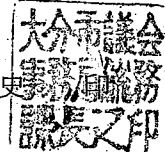 大分市議会
史 印
事務局総務
課長之印